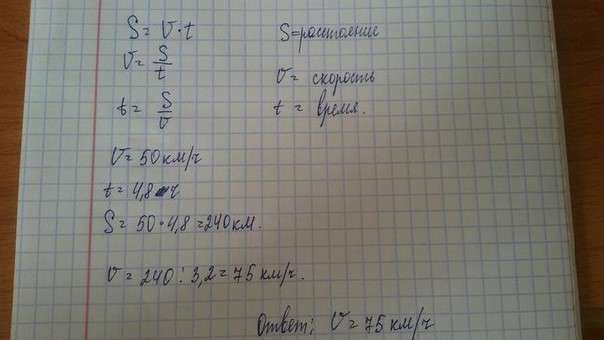 S = V · t
V = S/t
t = S/V
S = расстояние
V = скорость
t = время.
V = 50 км/ч
t = 4,8 ч
S = 50 · 4,8 = 240 км.
V = 240 : 3,2 = 75 км/ч.
Ответ: V = 75 км/ч